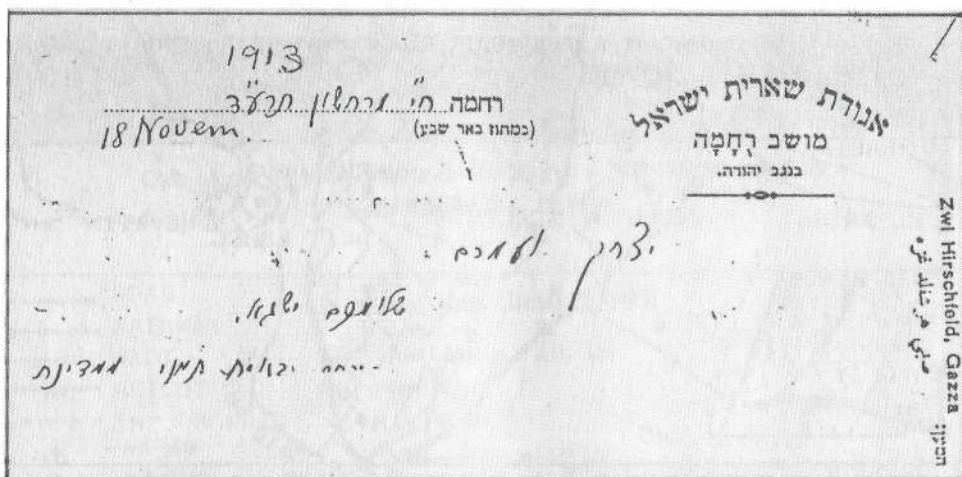 אגודת שארית ישראל
מושב רֻחָמָה
בנגב יהודה.
1913
רחמה ח"י מרחשון תרע"ד
18 Novem.
(במחוז באר שבע)
יצחק ועמרם
שלומכם ישגא.
תמני ממדינת
Zwi Hirschfeld, Gazza
המען: